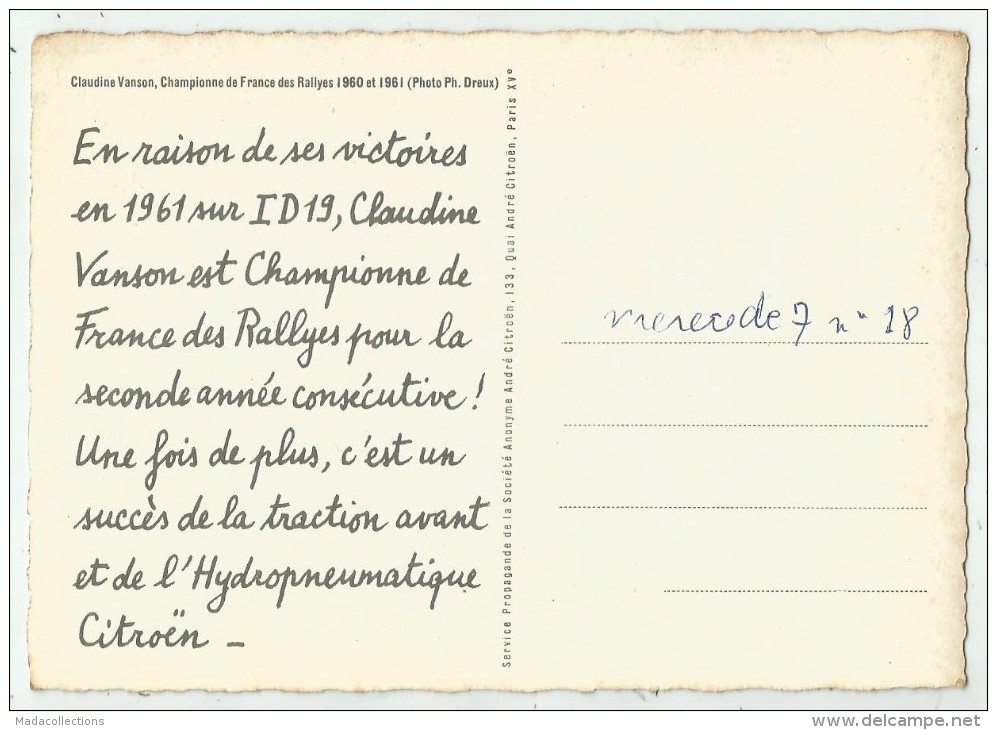 Claudine Vanson, Championne de France des Rallyes 1960 et 1961 (Photo Ph. Dreux)
En raison de ses victoires
en 1961 sur ID19, Claudine
Vanson est Championne de
France des Rallyes pour la
seconde année consécutive !
Une fois de plus, c'est un
succès de la traction avant
et de l'Hydropneumatique
Citroën _
Service Propagande de la Société Anonyme André Citroën, 133, Quai André Citroën, Paris XVe
7 n° 18
Madacollections
www.delcampe.net